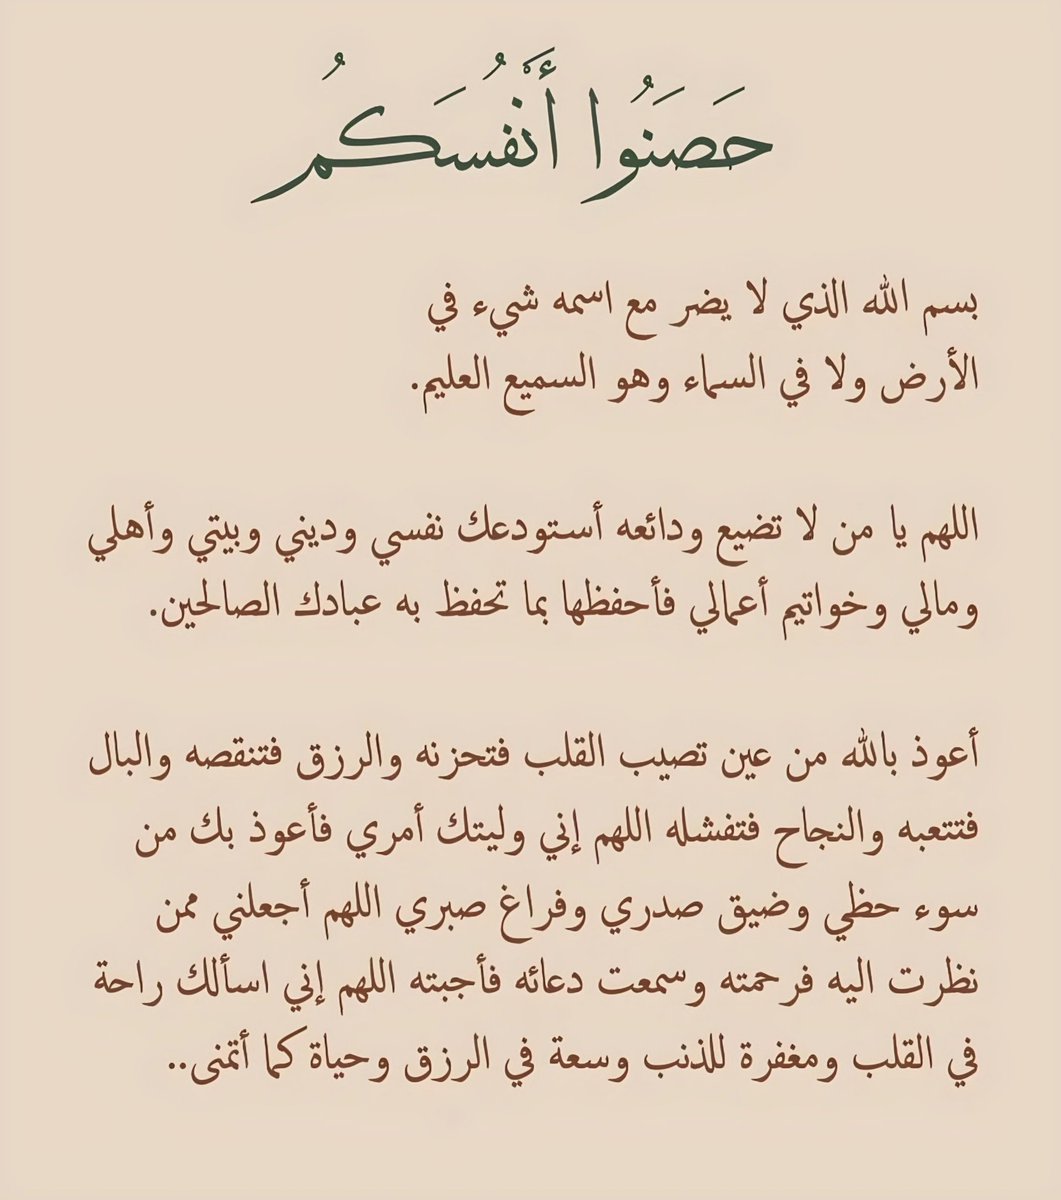 حَصَنُوا أَنْفُسَكُمُ
بسم الله الذي لا يضر مع اسمه شيء في
الأرض ولا في السماء وهو السميع العليم.
اللهم يا من لا تضيع ودائعه أستودعك نفسي وديني وبيتي وأهلي
ومالي وخواتيم أعمالي فأحفظها بما تحفظ به عبادك الصالحين.
أعوذ بالله من عين تصيب القلب فتحزنه والرزق فتنقصه والبال
فتتعبه والنجاح فتفشله اللهم إني وليتك أمري فأعوذ بك من
سوء حظي وضيق صدري وفراغ صبري اللهم أجعلني ممن
نظرت اليه فرحمته وسمعت دعائه فأجبته اللهم إني اسألك راحة
في القلب ومغفرة للذنب وسعة في الرزق وحياة كما أتمنى..